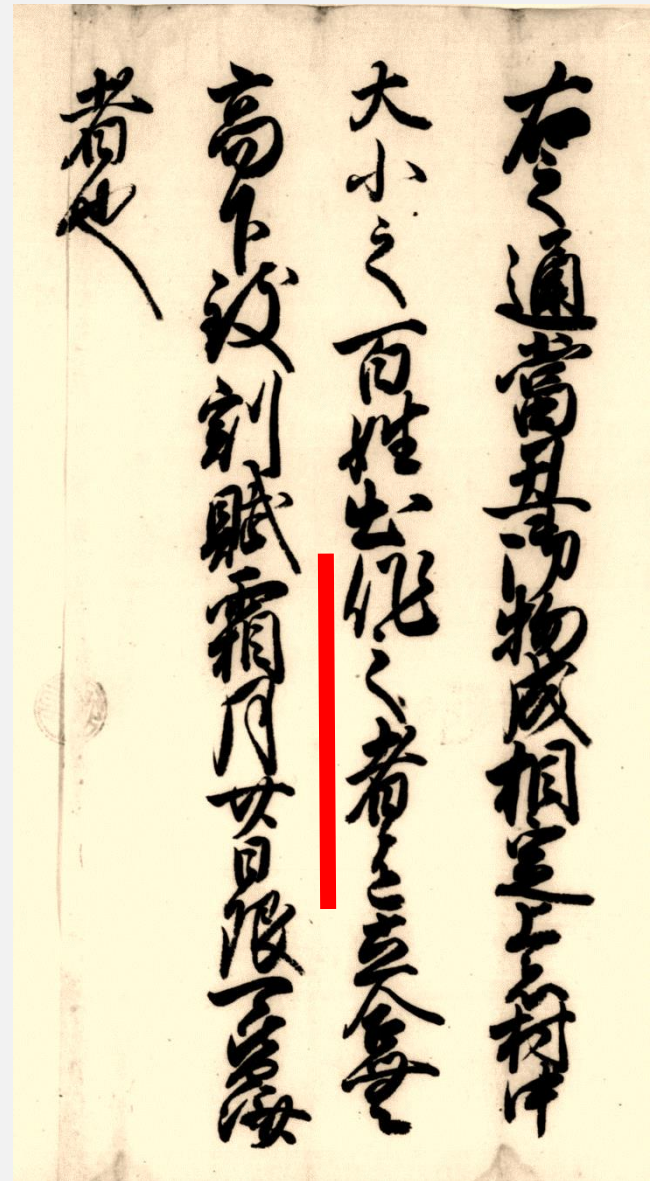 右之通當丑御物成相定上者村中
大小之百姓出作之者迄立合無
高下致割賦霜月廿日限可皆濟
者也